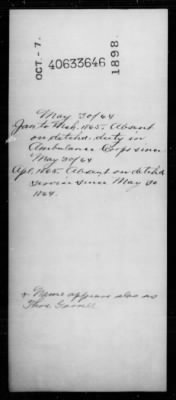 OCT-7. 1898.
40633646
May 30/64
Jan. to Mch. 1865. Absent
on detchd. duty in
Ambulance Corps since
May 30/64
Apl. 1865. Absent on detchd
service since May 30
1864.
Name appears also as
Thos.